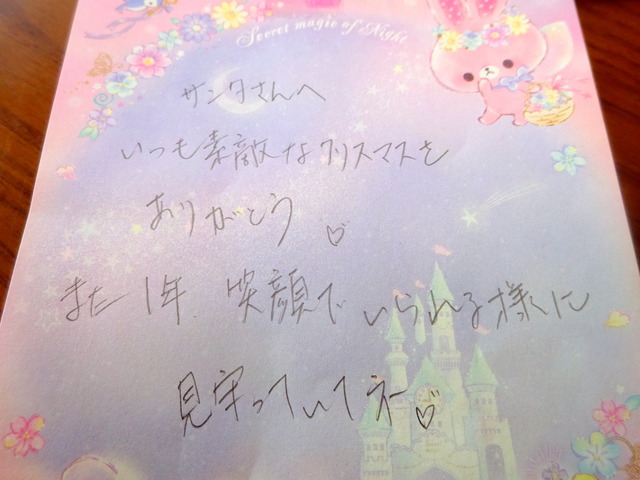 Secret magic of Night
サンタさんへ
いつも素敵なクリスマスを
ありがとう♡
また1年、笑顔でいられる様に
見守っていてネー♡